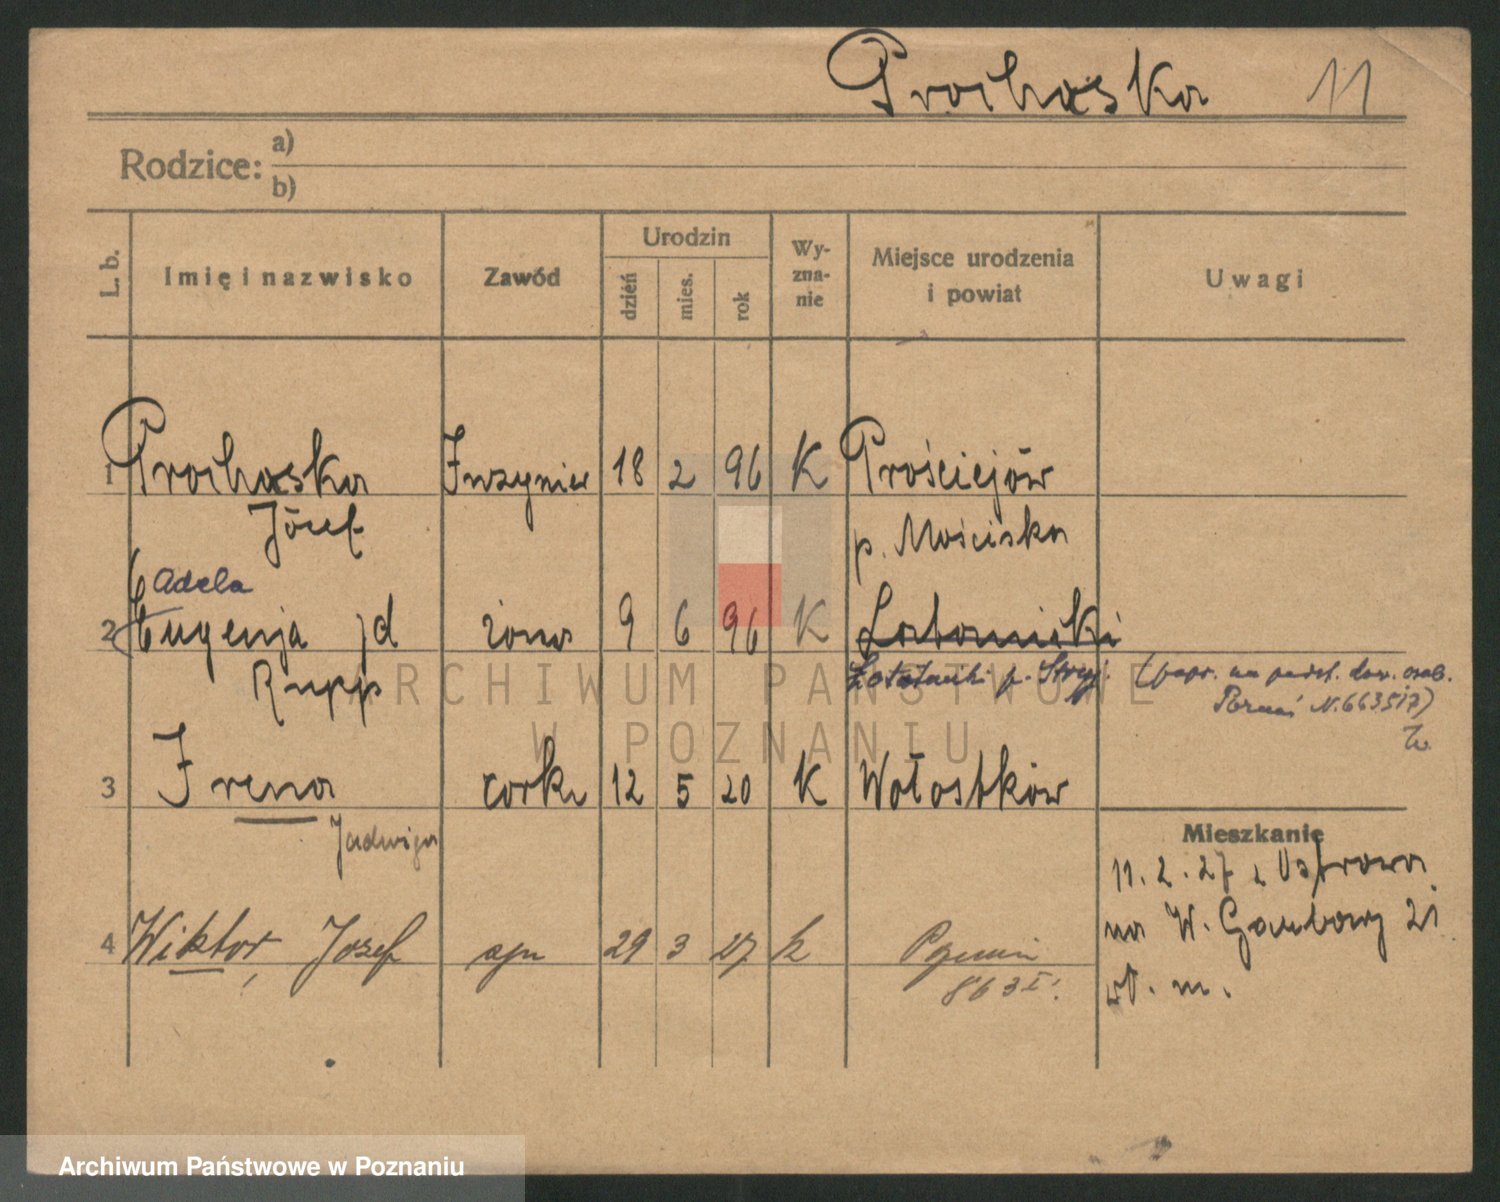 Prochaska 11
Rodzice: a)
b)
L. b. Imię i nazwisko Zawód Urodzin dzień mies. rok Wyzna-nie Miejsce urodzenia i powiat Uwagi
1 Prochaska Inżynier 18 2 96 K Prościejów
Józef p. Mościska
Adela
2 Eugenja jd żona 9 6 96 K
Rupp p. Stryj. (popr. na podst. dow. osob.
Poznań N. 663517)
3 Irena córka 12 5 20 K Wołostków
Jadwiga
Mieszkanie
11. 2. 27 z Ostrowa
4 Wiktor, Józef syn 29 3 27 k Poznań na W. Garbary 21
863 I. wł. m.
ARCHIWUM PAŃSTWOWE
W POZNANIU
Archiwum Państwowe w Poznaniu